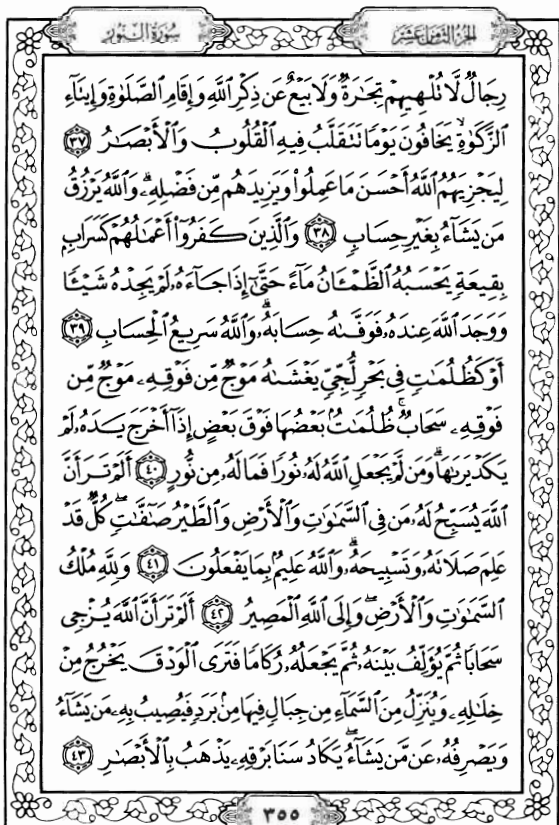 سُورَةُ النُّورِ
الجُزْءُ الثَّامِنَ عَشَرَ
رِجَالٌ لَّا تُلْهِيهِمْ تِجَٰرَةٌ وَلَا بَيْعٌ عَن ذِكْرِ ٱللَّهِ وَإِقَامِ ٱلصَّلَوٰةِ وَإِيتَآءِ
ٱلزَّكَوٰةِ ۙ يَخَافُونَ يَوْمًا تَتَقَلَّبُ فِيهِ ٱلْقُلُوبُ وَٱلْأَبْصَٰرُ ٣٧
لِيَجْزِيَهُمُ ٱللَّهُ أَحْسَنَ مَا عَمِلُوا۟ وَيَزِيدَهُم مِّن فَضْلِهِۦ ۗ وَٱللَّهُ يَرْزُقُ
مَن يَشَآءُ بِغَيْرِ حِسَابٍ ٣٨ وَٱلَّذِينَ كَفَرُوٓا۟ أَعْمَٰلُهُمْ كَسَرَابٍۭ
بِقِيعَةٍ يَحْسَبُهُ ٱلظَّمْـَٔانُ مَآءً حَتَّىٰٓ إِذَا جَآءَهُۥ لَمْ يَجِدْهُ شَيْـًٔا
وَوَجَدَ ٱللَّهَ عِندَهُۥ فَوَفَّىٰهُ حِسَابَهُۥ ۗ وَٱللَّهُ سَرِيعُ ٱلْحِسَابِ ٣٩
أَوْ كَظُلُمَٰتٍ فِى بَحْرٍ لُّجِّىٍّ يَغْشَىٰهُ مَوْجٌ مِّن فَوْقِهِۦ مَوْجٌ مِّن
فَوْقِهِۦ سَحَابٌ ۚ ظُلُمَٰتٌۢ بَعْضُهَا فَوْقَ بَعْضٍ إِذَآ أَخْرَجَ يَدَهُۥ لَمْ
يَكَدْ يَرَىٰهَا ۗ وَمَن لَّمْ يَجْعَلِ ٱللَّهُ لَهُۥ نُورًا فَمَا لَهُۥ مِن نُّورٍ ٤٠ أَلَمْ تَرَ أَنَّ
ٱللَّهَ يُسَبِّحُ لَهُۥ مَن فِى ٱلسَّمَٰوَٰتِ وَٱلْأَرْضِ وَٱلطَّيْرُ صَٰٓفَّٰتٍ ۖ كُلٌّ قَدْ
عَلِمَ صَلَاتَهُۥ وَتَسْبِيحَهُۥ ۗ وَٱللَّهُ عَلِيمٌۢ بِمَا يَفْعَلُونَ ٤١ وَلِلَّهِ مُلْكُ
ٱلسَّمَٰوَٰتِ وَٱلْأَرْضِ ۖ وَإِلَى ٱللَّهِ ٱلْمَصِيرُ ٤٢ أَلَمْ تَرَ أَنَّ ٱللَّهَ يُزْجِى
سَحَابًا ثُمَّ يُؤَلِّفُ بَيْنَهُۥ ثُمَّ يَجْعَلُهُۥ رُكَامًا فَتَرَى ٱلْوَدْقَ يَخْرُجُ مِنْ
خِلَٰلِهِۦ وَيُنَزِّلُ مِنَ ٱلسَّمَآءِ مِن جِبَالٍ فِيهَا مِنۢ بَرَدٍ فَيُصِيبُ بِهِۦ مَن يَشَآءُ
وَيَصْرِفُهُۥ عَن مَّن يَشَآءُ ۖ يَكَادُ سَنَا بَرْقِهِۦ يَذْهَبُ بِٱلْأَبْصَٰرِ ٤٣
٣٥٥